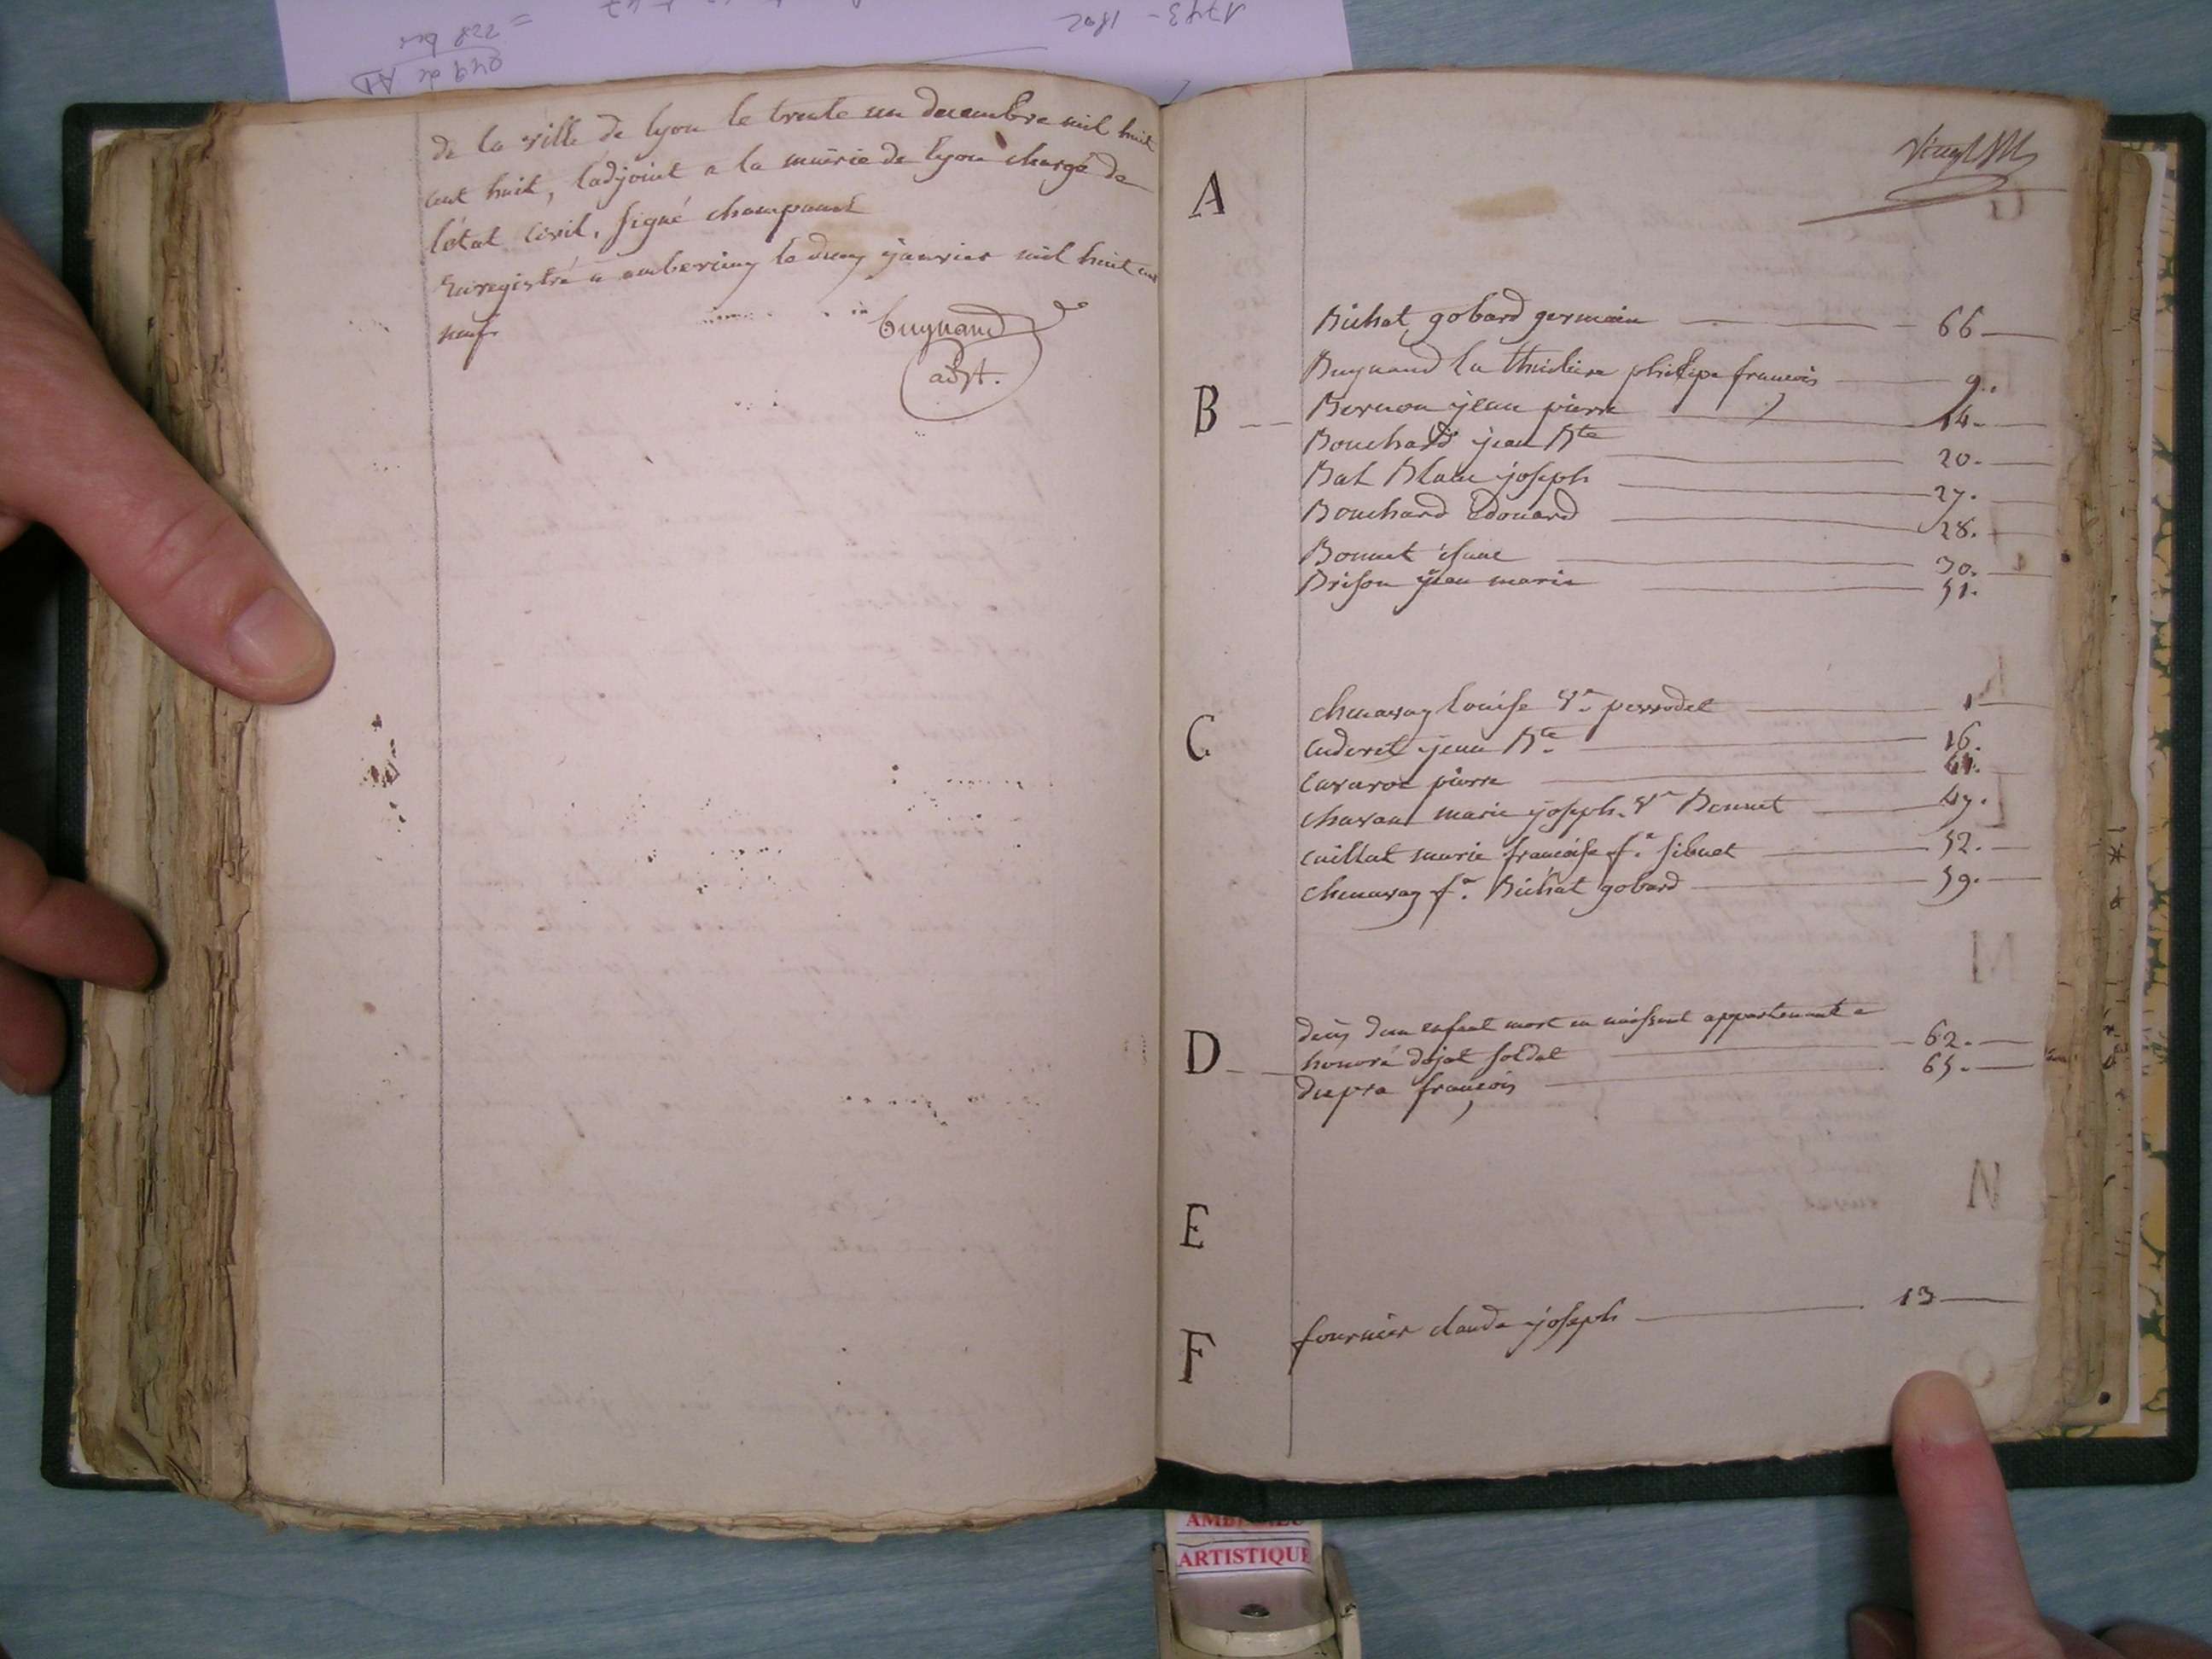 1743 - 1802
= 228 bis
049 de AD
de la ville de lyon le trente un decembre mil huit
cent huit, ladjoint a la mairie de lyon chargé de
l'état civil, signé champanet
Enregistré a amberieux le deux janvier mil huit cent
neuf
buynand
adjt.
A
Bichat gobard germain 66
Buynand la thuiliere philipe francois 9.
B Bernon jean pierre 14.
Bouchard jean Bte 20.
Bal Blanc joseph 27.
Bouchard Edouard 28.
Bonnet 30.
Brison jean marie 51.
C
chenavay louise Ve perrodet 1
cuderet jean Bte 16.
cavarot pierre 41.
chavant marie joseph Ve Bonnet 47.
cuillat marie francoise fe sibuet 52.
chenavay fe Bichat gobard 59.
D
deces dun enfant mort en naissant appartenant a
honoré dojat soldat 62.
dupra francois 65.
E
F
fournier claude joseph 13
ARTISTIQUE